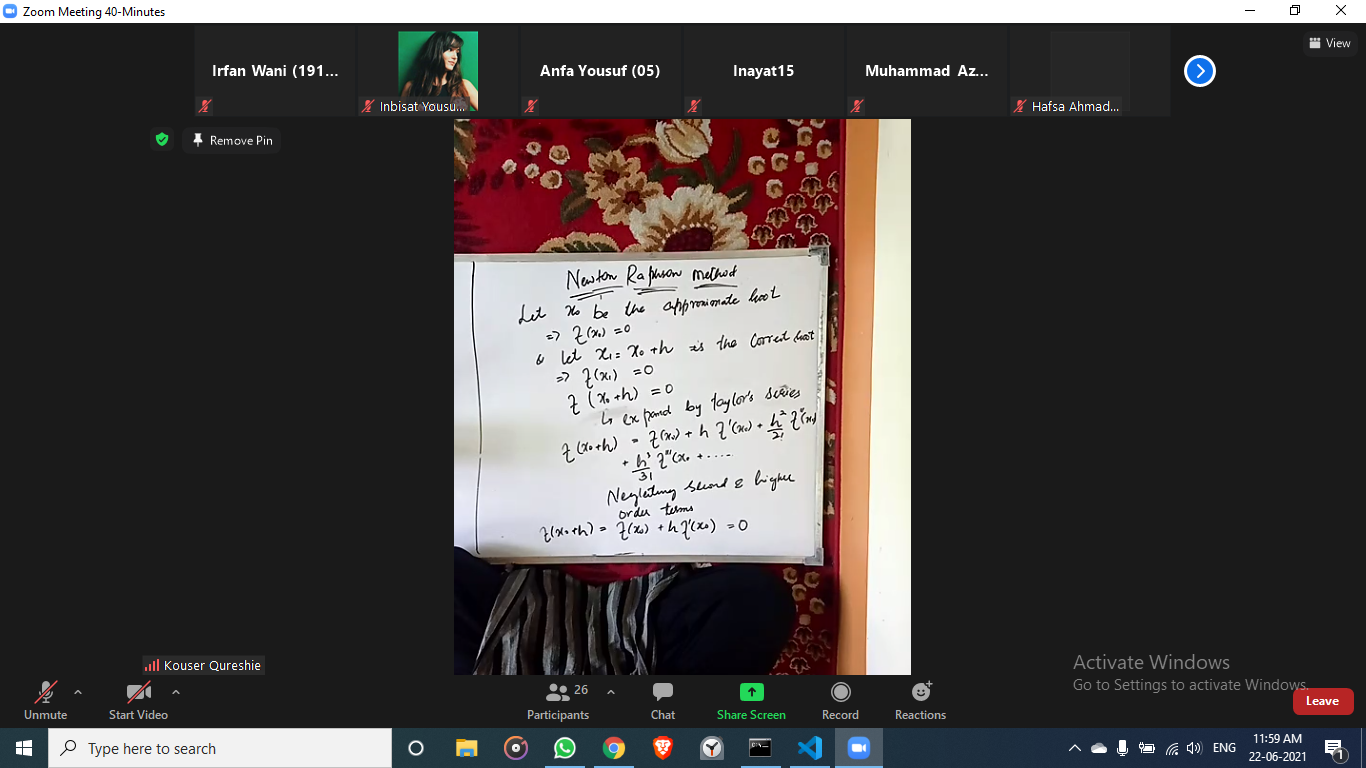 Zoom Meeting 40-Minutes
View
Irfan Wani (191...
Inbisat Yousu...
Anfa Yousuf (05)
Inayat15
Muhammad Az...
Hafsa Ahmad...
Remove Pin
Newton Raphson Method
Let x₀ be the approximate root
=> f(x₀) = 0
& let x₁ = x₀ + h is the correct root
=> f(x₁) = 0
f(x₀+h) = 0
↳ expand by Taylor's series
f(x₀+h) = f(x₀) + h f'(x₀) + h²/2! f''(x₀)
+ h³/3! f'''(x₀ + .....
Neglecting second & higher
order terms
f(x₀+h) = f(x₀) + h f'(x₀) = 0
Kouser Qureshie
Activate Windows
Go to Settings to activate Windows.
Unmute
Start Video
26
Participants
Chat
Share Screen
Record
Reactions
Leave
Type here to search
ENG
11:59 AM
22-06-2021
1